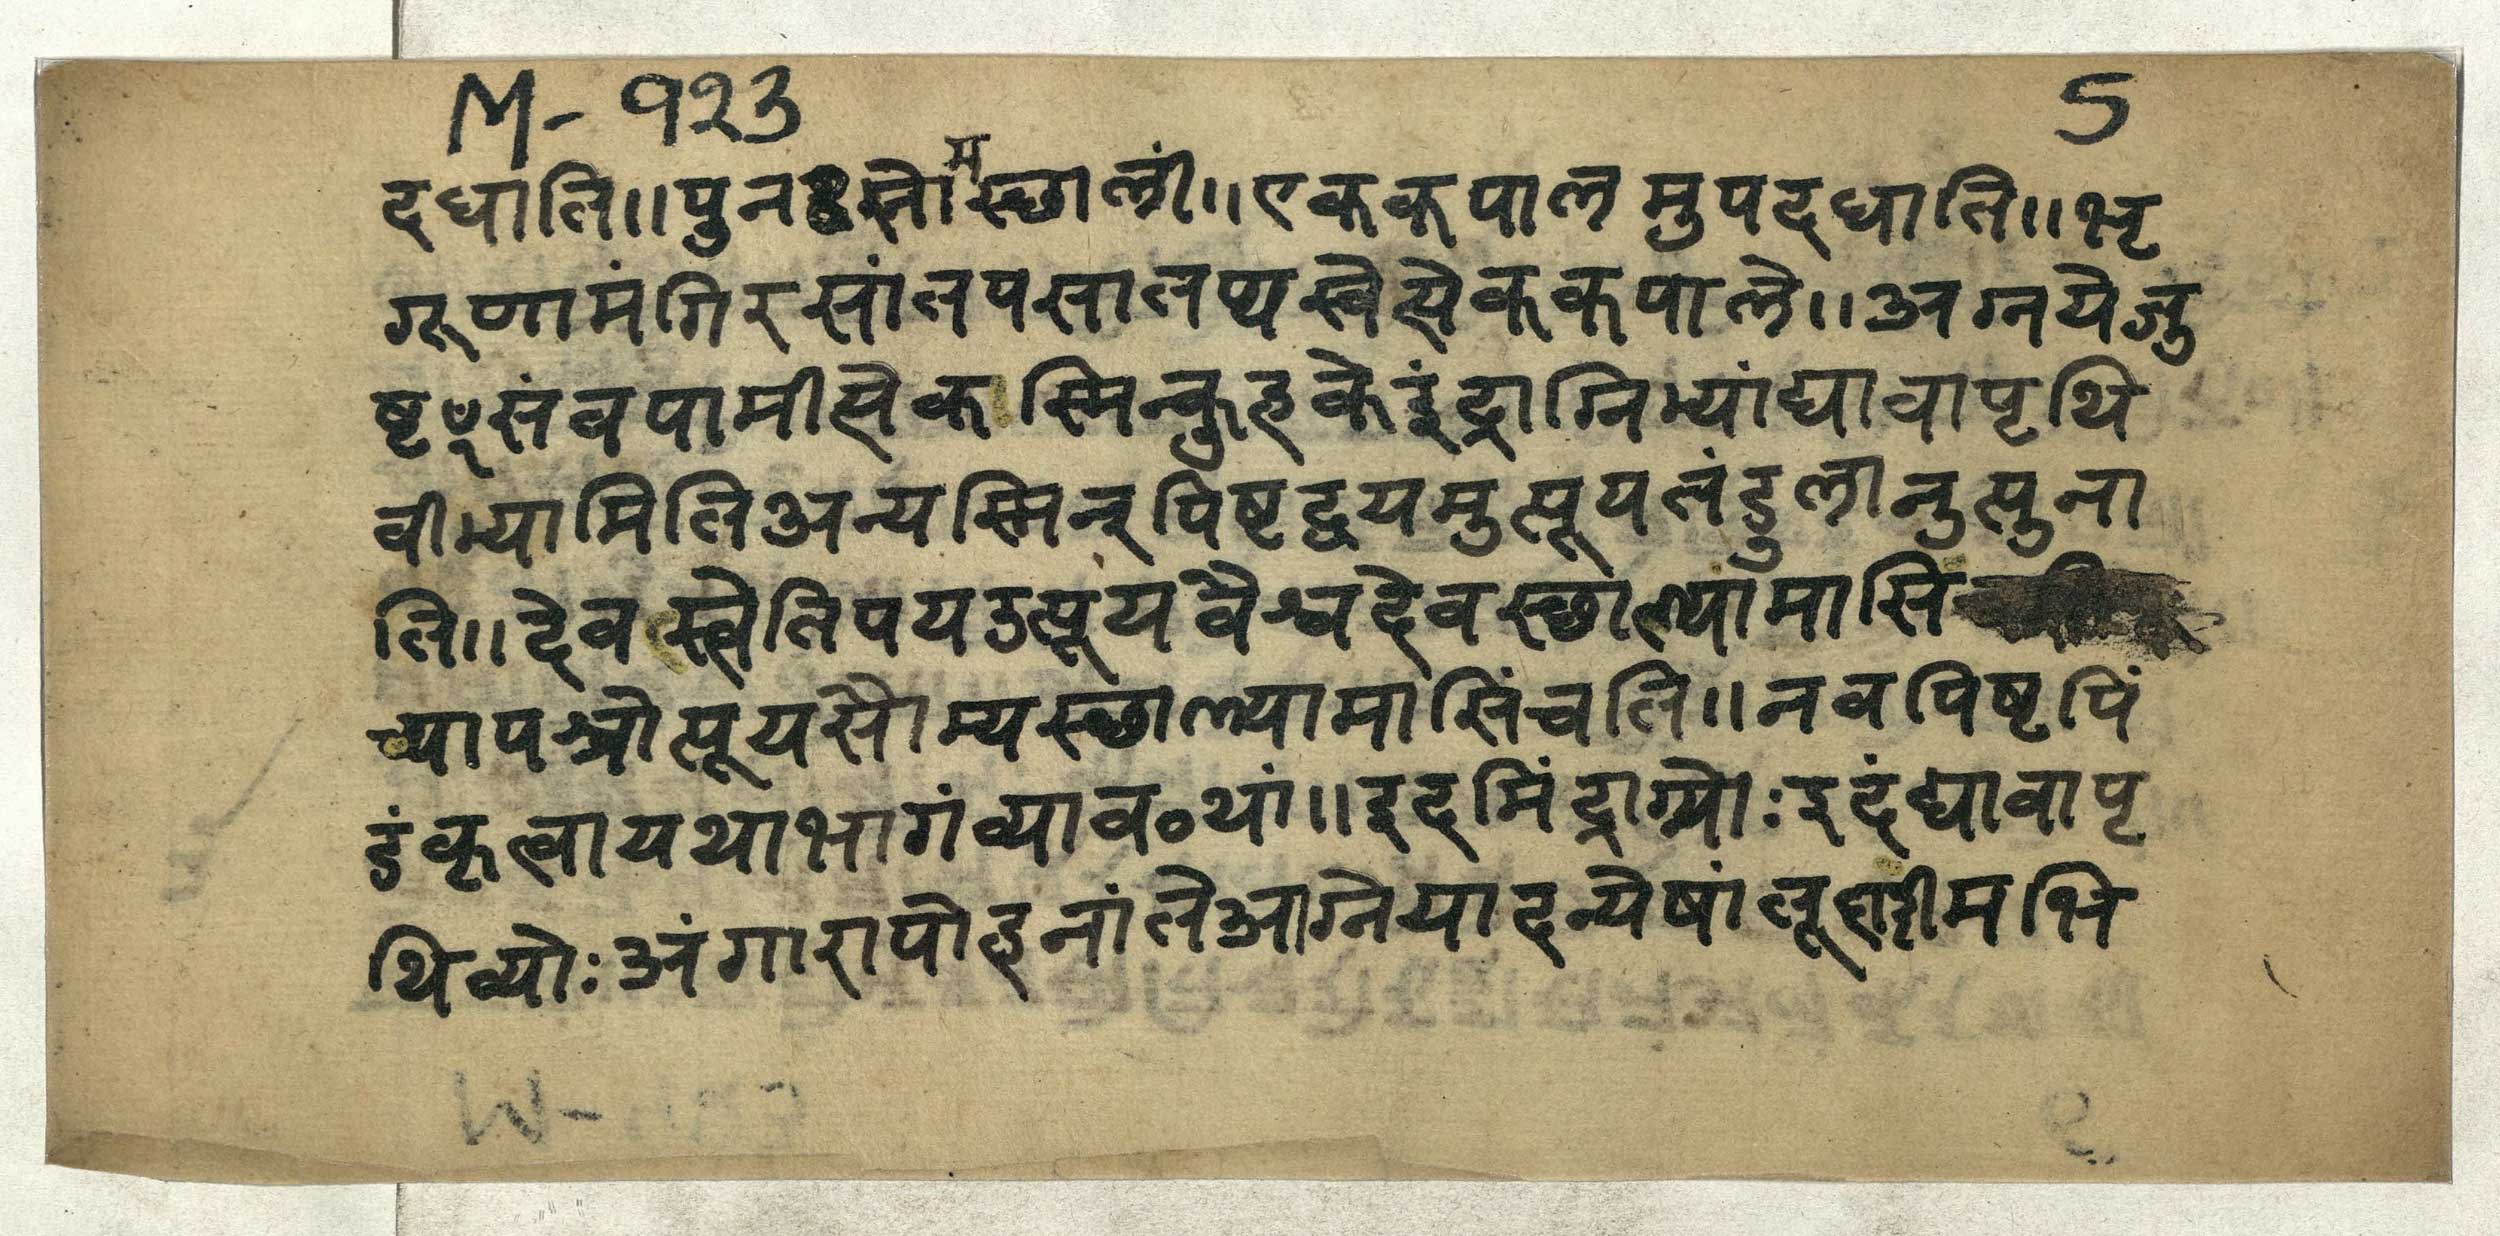 M- १२३ 5
दधाति॥पुनःसौम्यस्थालीं॥एककपालमुपदधाति॥भृ
गूणामंगिरसांतपसातप्यस्वेत्येककपाले॥अग्नयेजु
ष्टꣳसंवपामीत्येकस्मिन्कुहकेइंद्राग्निभ्यांद्यावापृथि
वीभ्यामितिअन्यस्मिन्पिष्टद्वयमुत्पूयतंडुलानुत्पुना
ति॥देवस्त्वेतिपयउत्पूयवैश्वदेवस्थाल्यामासि
च्यापश्चोत्पूयसौम्यस्थाल्यामासिंचति॥नवपिष्टपिं
डंकृत्वायथाभागंव्याव॰थां॥इदमिंद्राग्न्योःइदंद्यावापृ
थिव्योःअंगारापोहनांतेआग्नेयादन्येषांतूष्णीमभि